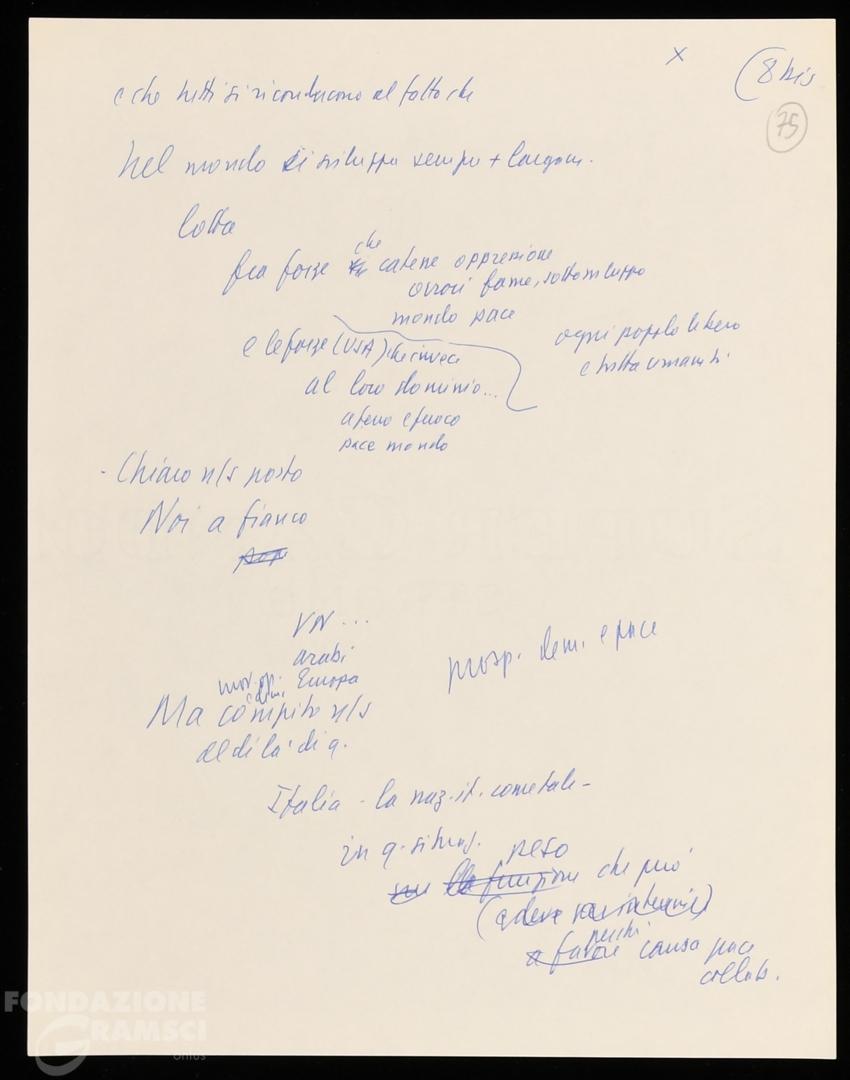 X
(8 bis
75
e che tutti si riconducono al fatto che
Nel mondo si sviluppa sempre + largam.
lotta
fra forze che catene oppressione
orrori fame, sottosviluppo
mondo pace
ogni popolo libero
e tutta umanità
e le forze (USA) che invece
al loro dominio...
a ferro e fuoco
pace mondo
- Chiaro n/s posto
Noi a fianco
VN ...
arabi
mov. op. Europa
prosp. dem. e pace
Ma compito n/s
al di là di q.
Italia - la naz. it. come tale -
in q. situaz. peso
la funzione che può
(e deve
perché
a favore causa pace
collab.
FONDAZIONE
GRAMSCI
onlus